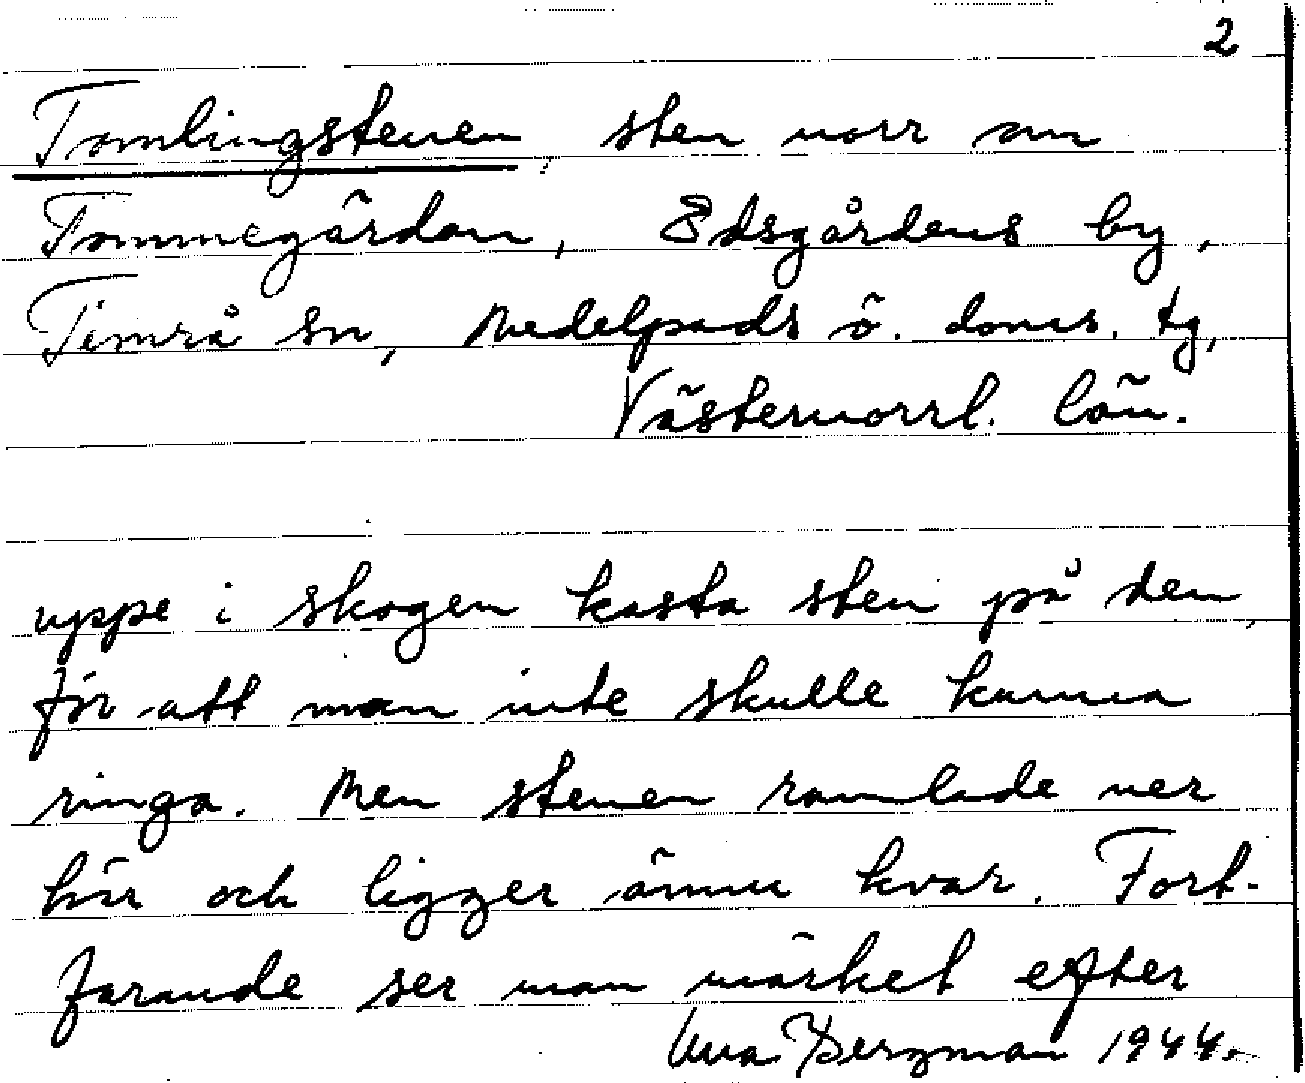 2
Tomlingstenen, sten norr om
Tommegården, Edsgårdens by,
Timrå sn, Medelpads ö. doms. tg,
Västernorrl. län.
uppe i skogen kasta sten på den,
för att man inte skulle kunna
ringa. Men stenen ramlade ner
här och ligger ännu kvar. Fort-
farande ser man märket efter
Bergman 1944.